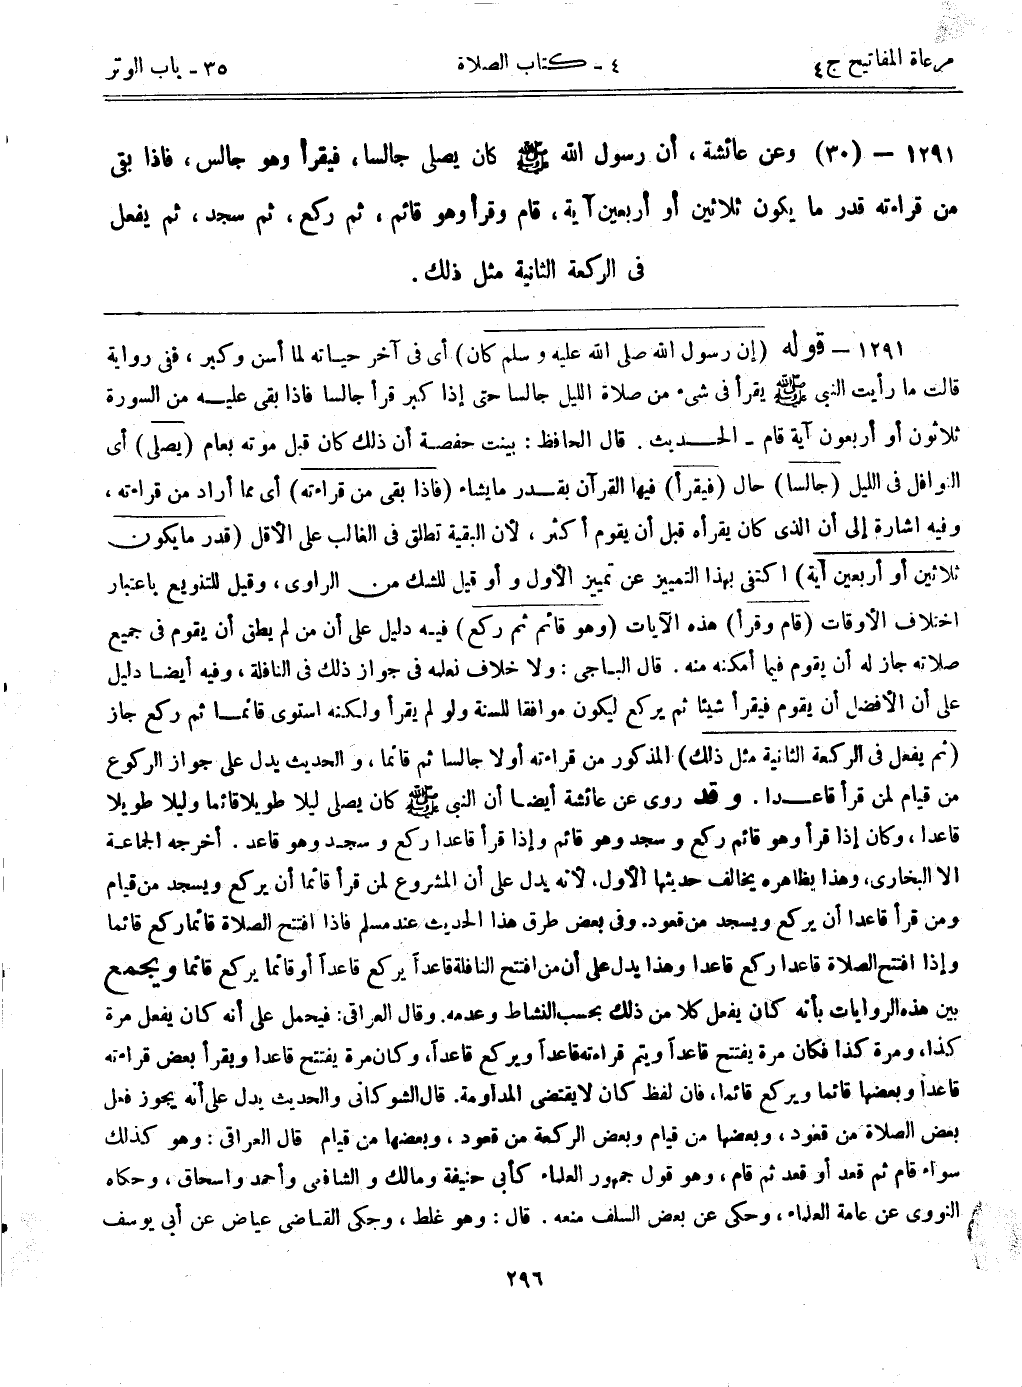 مرعاة المفاتيح ج٤
٤ ـ كتاب الصلاة
٣٥ ـ باب الوتر
١٢٩١ – (٣٠) وعن عائشة، أن رسول الله ﷺ كان يصلى جالسا، فيقرأ وهو جالس، فاذا بقى
من قراءته قدر ما يكون ثلاثين أو أربعين آية، قام وقرأ وهو قائم، ثم ركع، ثم سجد، ثم يفعل
فى الركعة الثانية مثل ذلك.
١٢٩١ – قوله (إن رسول الله صلى الله عليه و سلم كان) أى فى آخر حياته لما أسن وكبر، ففى رواية
قالت ما رأيت النبى ﷺ يقرأ فى شىء من صلاة الليل جالسا حتى إذا كبر قرأ جالسا فاذا بقى عليه من السورة
ثلاثون أو أربعون آية قام ـ الحديث. قال الحافظ: بينت حفصة أن ذلك كان قبل موته بعام (يصلى) أى
النوافل فى الليل (جالسا) حال (فيقرأ) فيها القرآن بقدر مايشاء (فاذا بقى من قراءته) أى مما أراد من قراءته،
وفيه اشارة إلى أن الذى كان يقرأه قبل أن يقوم أكثر، لأن البقية تطلق فى الغالب على الأقل (قدر مايكون
ثلاثين أو أربعين آية) اكتفى بهذا التمييز عن تمييز الأول و أو قيل للشك من الراوى، وقيل للتنويع باعتبار
اختلاف الأوقات (قام وقرأ) هذه الآيات (وهو قائم ثم ركع) فيه دليل على أن من لم يطق أن يقوم فى جميع
صلاته جاز له أن يقوم فيما أمكنه منه. قال الباجى: ولا خلاف نعلمه فى جواز ذلك فى النافلة، وفيه أيضا دليل
على أن الأفضل أن يقوم فيقرأ شيئا ثم يركع ليكون موافقا للسنة ولو لم يقرأ ولكنه استوى قائما ثم ركع جاز
(ثم يفعل فى الركعة الثانية مثل ذلك) المذكور من قراءته أولا جالسا ثم قائما، و الحديث يدل على جواز الركوع
من قيام لمن قرأ قاعدا. وقد روى عن عائشة أيضا أن النبى ﷺ كان يصلى ليلا طويلا قائما وليلا طويلا
قاعدا، وكان إذا قرأ وهو قائم ركع و سجد وهو قائم وإذا قرأ قاعدا ركع و سجد وهو قاعد. أخرجه الجماعة
الا البخارى، وهذا بظاهره يخالف حديثها الأول، لأنه يدل على أن المشروع لمن قرأ قائما أن يركع ويسجد من قيام
ومن قرأ قاعدا أن يركع ويسجد من قعود. وفى بعض طرق هذا الحديث عند مسلم فاذا افتتح الصلاة قائما ركع قائما
وإذا افتتح الصلاة قاعدا ركع قاعدا وهذا يدل على أن من افتتح النافلة قاعداً يركع قاعداً أو قائما يركع قائما ويجمع
بين هذه الروايات بأنه كان يفعل كلا من ذلك بحسب النشاط وعدمه. وقال العراقى: فيحمل على أنه كان يفعل مرة
كذا، ومرة كذا فكان مرة يفتتح قاعداً ويتم قراءته قاعداً ويركع قاعداً، وكان مرة يفتتح قاعدا ويقرأ بعض قراءته
قاعداً وبعضها قائما ويركع قائما، فان لفظ كان لا يقتضى المداومة. قال الشوكانى والحديث يدل على أنه يجوز فعل
بعض الصلاة من قعود، وبعضها من قيام وبعض الركعة من قعود، وبعضها من قيام قال العراقى: وهو كذلك
سواء قام ثم قعد أو قعد ثم قام، وهو قول جمهور العلماء كأبى حنيفة ومالك و الشافعى وأحمد واسحاق، وحكاه
النووى عن عامة العلماء، وحكى عن بعض السلف منعه. قال: وهو غلط، وحكى القاضى عياض عن أبى يوسف
٢٩٦